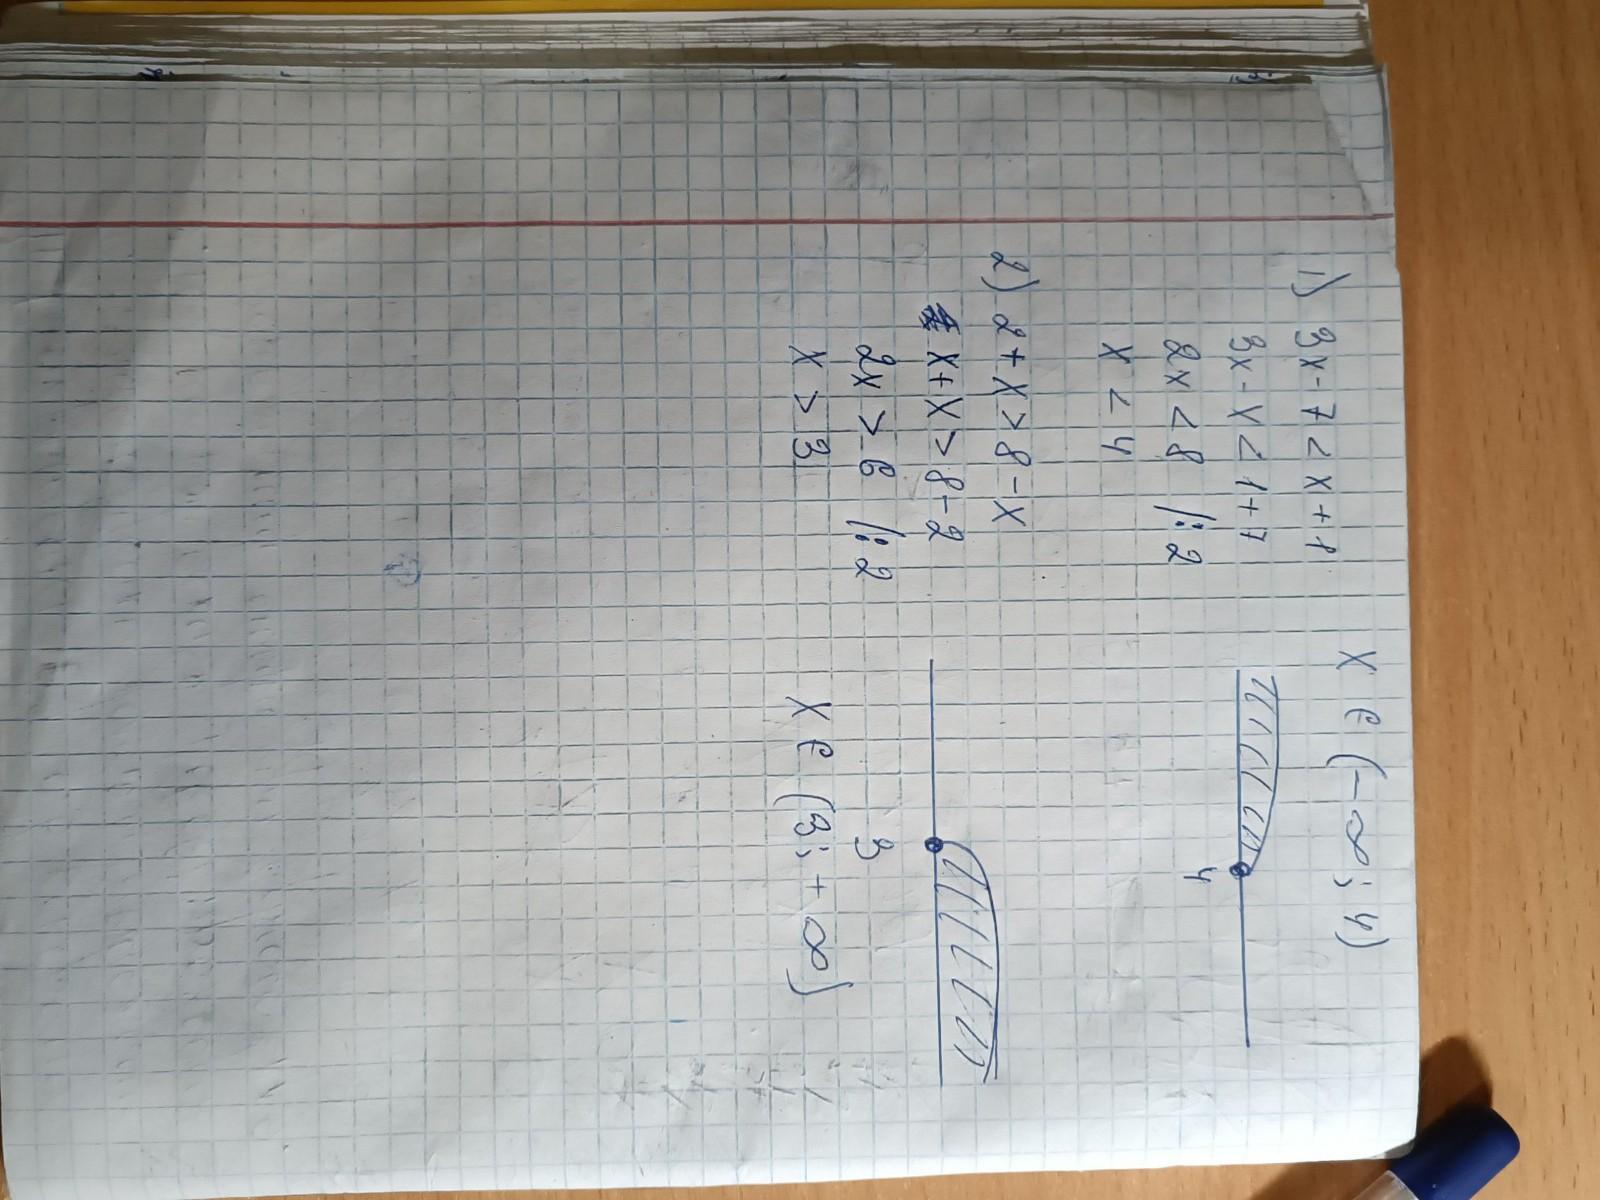 1) 3x-7<x+1
3x-x<1+7
2x<8 |:2
x<4
x∈(-∞;4)
4
2) 2+x>8-x
x+x>8-2
2x>6 |:2
x>3
3
x∈(3;+∞)